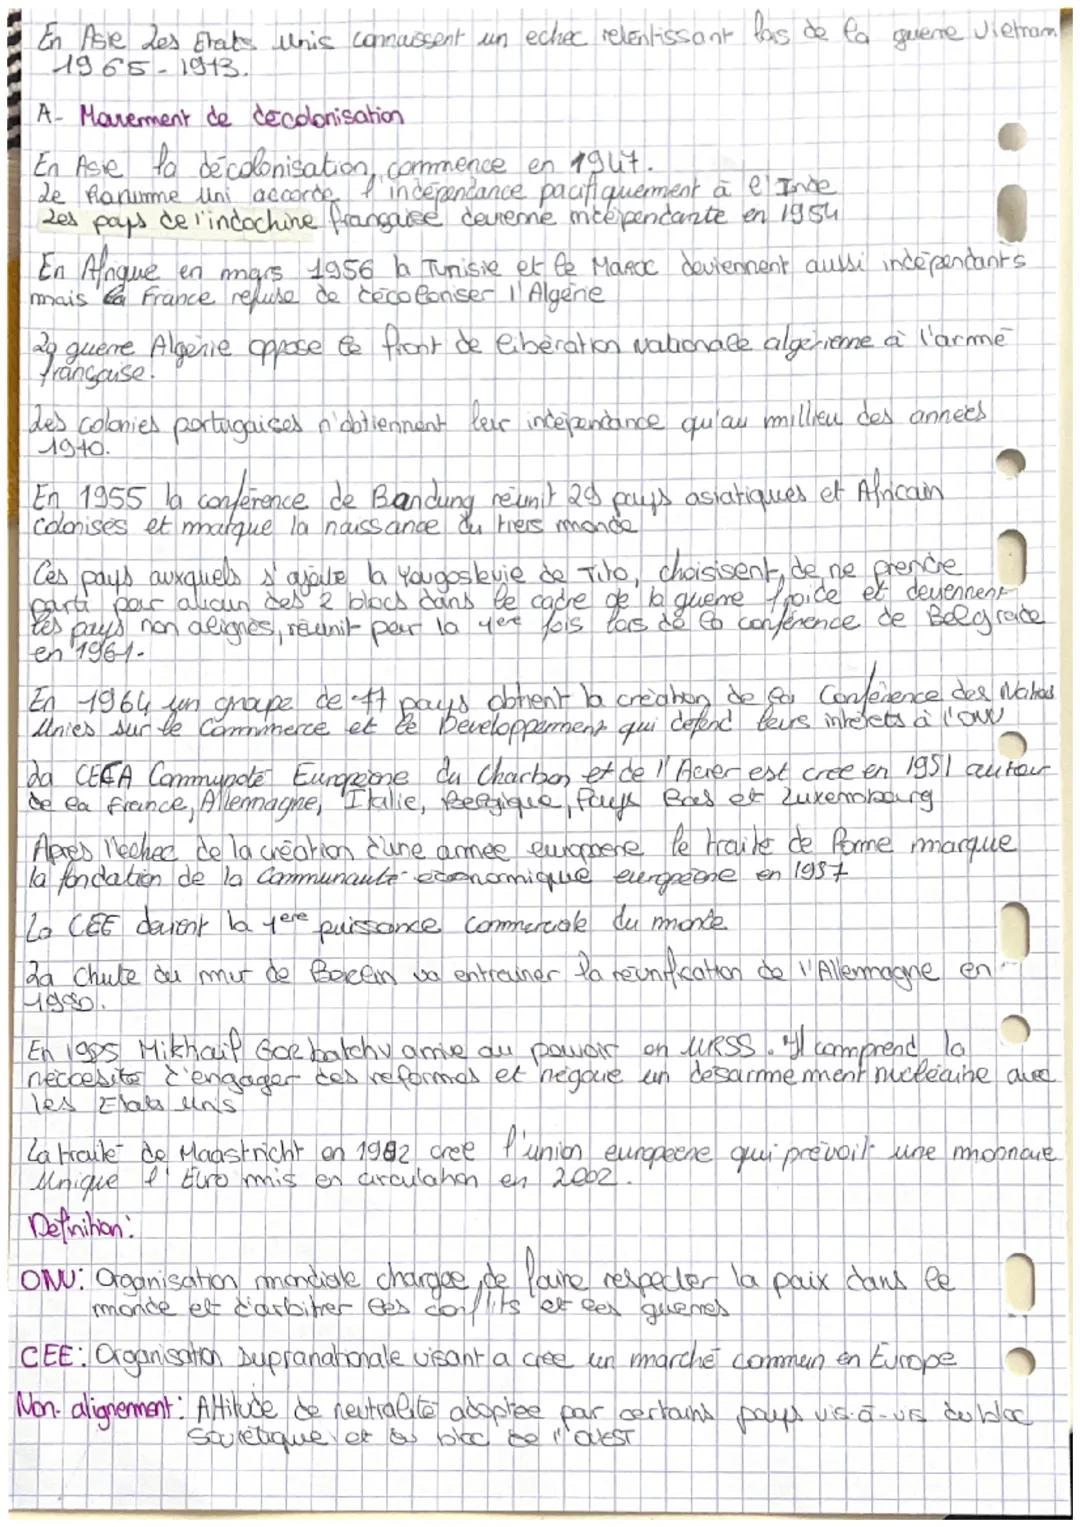 En Asie Les Etats Unis connaissent un echec retentissant lors de la guerre Vietnam
1965-1973.
A- Mouvement de décolonisation
En Asie la décolonisation, commence en 1947.
Le Royaume Uni accorde l'indépendance pacifiquement à l'Inde
Les pays de l'indochine française devienne indépendante en 1954
En Afrique en mars 1956 la Tunisie et le Maroc deviennent aussi indépendants
mais la France refuse de décoloniser l'Algérie
La guerre Algérie oppose le front de libération nationale algérienne à l'armé
française.
Les colonies portugaises n'obtiennent leur indépendance qu'au millieu des années
1970.
En 1955 la conférence de Bandung réunit 29 pays asiatiques et Africain
colonisés et marque la naissance du tiers monde
Ces pays auxquels s'ajoute la Yougoslavie de Tito, choisisent, de ne prendre
parti pour aucun des 2 blocs dans le cadre de la guerre froide et deviennent
les pays non alignés, réunit pour la 1ere fois lors de la conférence de Belgrade
en 1961.
En 1964 un groupe de 77 pays obtient la création de la Conférence des Nations
Unies sur le Commmerce et le Développement qui defend leurs intérets à l'ONU
La CECA Communoté Européene du Charbon et de l'Acier est cree en 1951 autour
de la france, Allemagne, Italie, Belgique, Pays Bas et Luxembourg
Apres l'echec de la création d'une armée européene le traité de Rome marque
la fondation de la Communauté economique européene en 1957
La CEE devient la 1ere puissance commerciale du monde
La Chute du mur de Berlin va entrainer la réunification de l'Allemagne en
1990.
En 1985 Mikhaïl Gorbatchv arrive au pouvoir en URSS. Il comprend la
neccesité d'engager des reformes et négocie un désarmement nucléaire avec
les Etats Unis
La traité de Maastricht en 1992 cree l'union européene qui prévoit une monnaie
Unique l'Euro mis en circulation en 2002.
Definition:
ONU: Organisation mondiale chargee de faire respecter la paix dans le
monde et d'arbitrer les conflits et les guerres
CEE: Organisation supranationale visant a cree un marché commun en Europe
Non-alignement: Attitude de neutralité adoptée par certains pays vis-à-vis du bloc
Sovietique et du bloc de l'OUEST